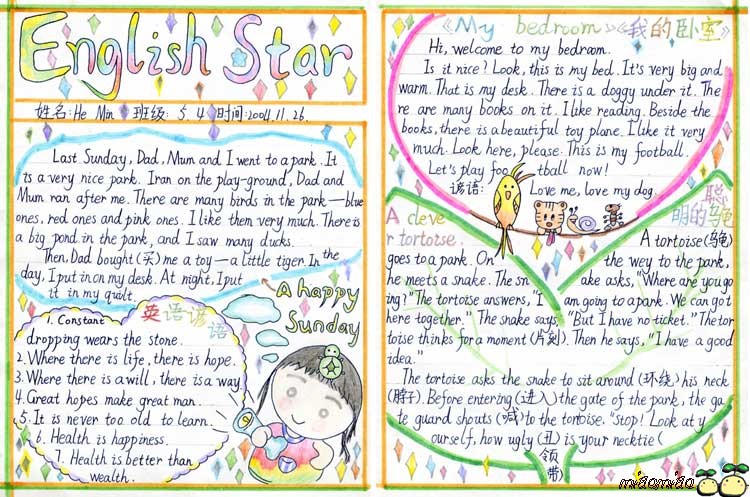 English Star
姓名:He Min 班级: 5.4 时间:2004.11.26.
Last Sunday, Dad, Mum and I went to a park. It
is a very nice park. I ran on the play-ground, Dad and
Mum ran after me. There are many birds in the park—blue
ones, red ones and pink ones. I like them very much. There is
a big pond in the park, and I saw many ducks.
Then, Dad bought (买) me a toy—a little tiger. In the
day, I put in on my desk. At night, I put
it in my quilt.
A happy
Sunday
英语谚语
1. Constant
dropping wears the stone.
2. Where there is life, there is hope.
3. Where there is a will, there is a way
4. Great hopes make great man.
5. It is never too old to learn.
6. Health is happiness.
7. Health is better than
wealth.
《My bedroom》《我的卧室》
Hi, welcome to my bedroom.
Is it nice? Look, this is my bed. It's very big and
warm. That is my desk. There is a doggy under it. The
re are many books on it. I like reading. Beside the
books, there is a beautiful toy plane. I like it very
much. Look here, please. This is my football.
Let's play foo tball now!
谚语: Love me, love my dog.
A cleve
r tortoise.
聪
明的乌龟
A tortoise(乌龟)
goes to a park. On the wey to the park,
he meets a snake. The sn ake asks, "Where are you go
ing?" The tortoise answers, "I am going to a park. We can got
here together." The snake says, "But I have no ticket." The tor
toise thinks for a moment (片刻). Then he says, "I have a good
idea."
The tortoise asks the snake to sit around (环绕) his neck
(脖子). Before entering (进入) the gate of the park, the ga
te guard shouts (喊) to the tortoise. "Stop! Look at y
ourself, how ugly (丑) is your necktie (
领
带)
miǎomiǎo